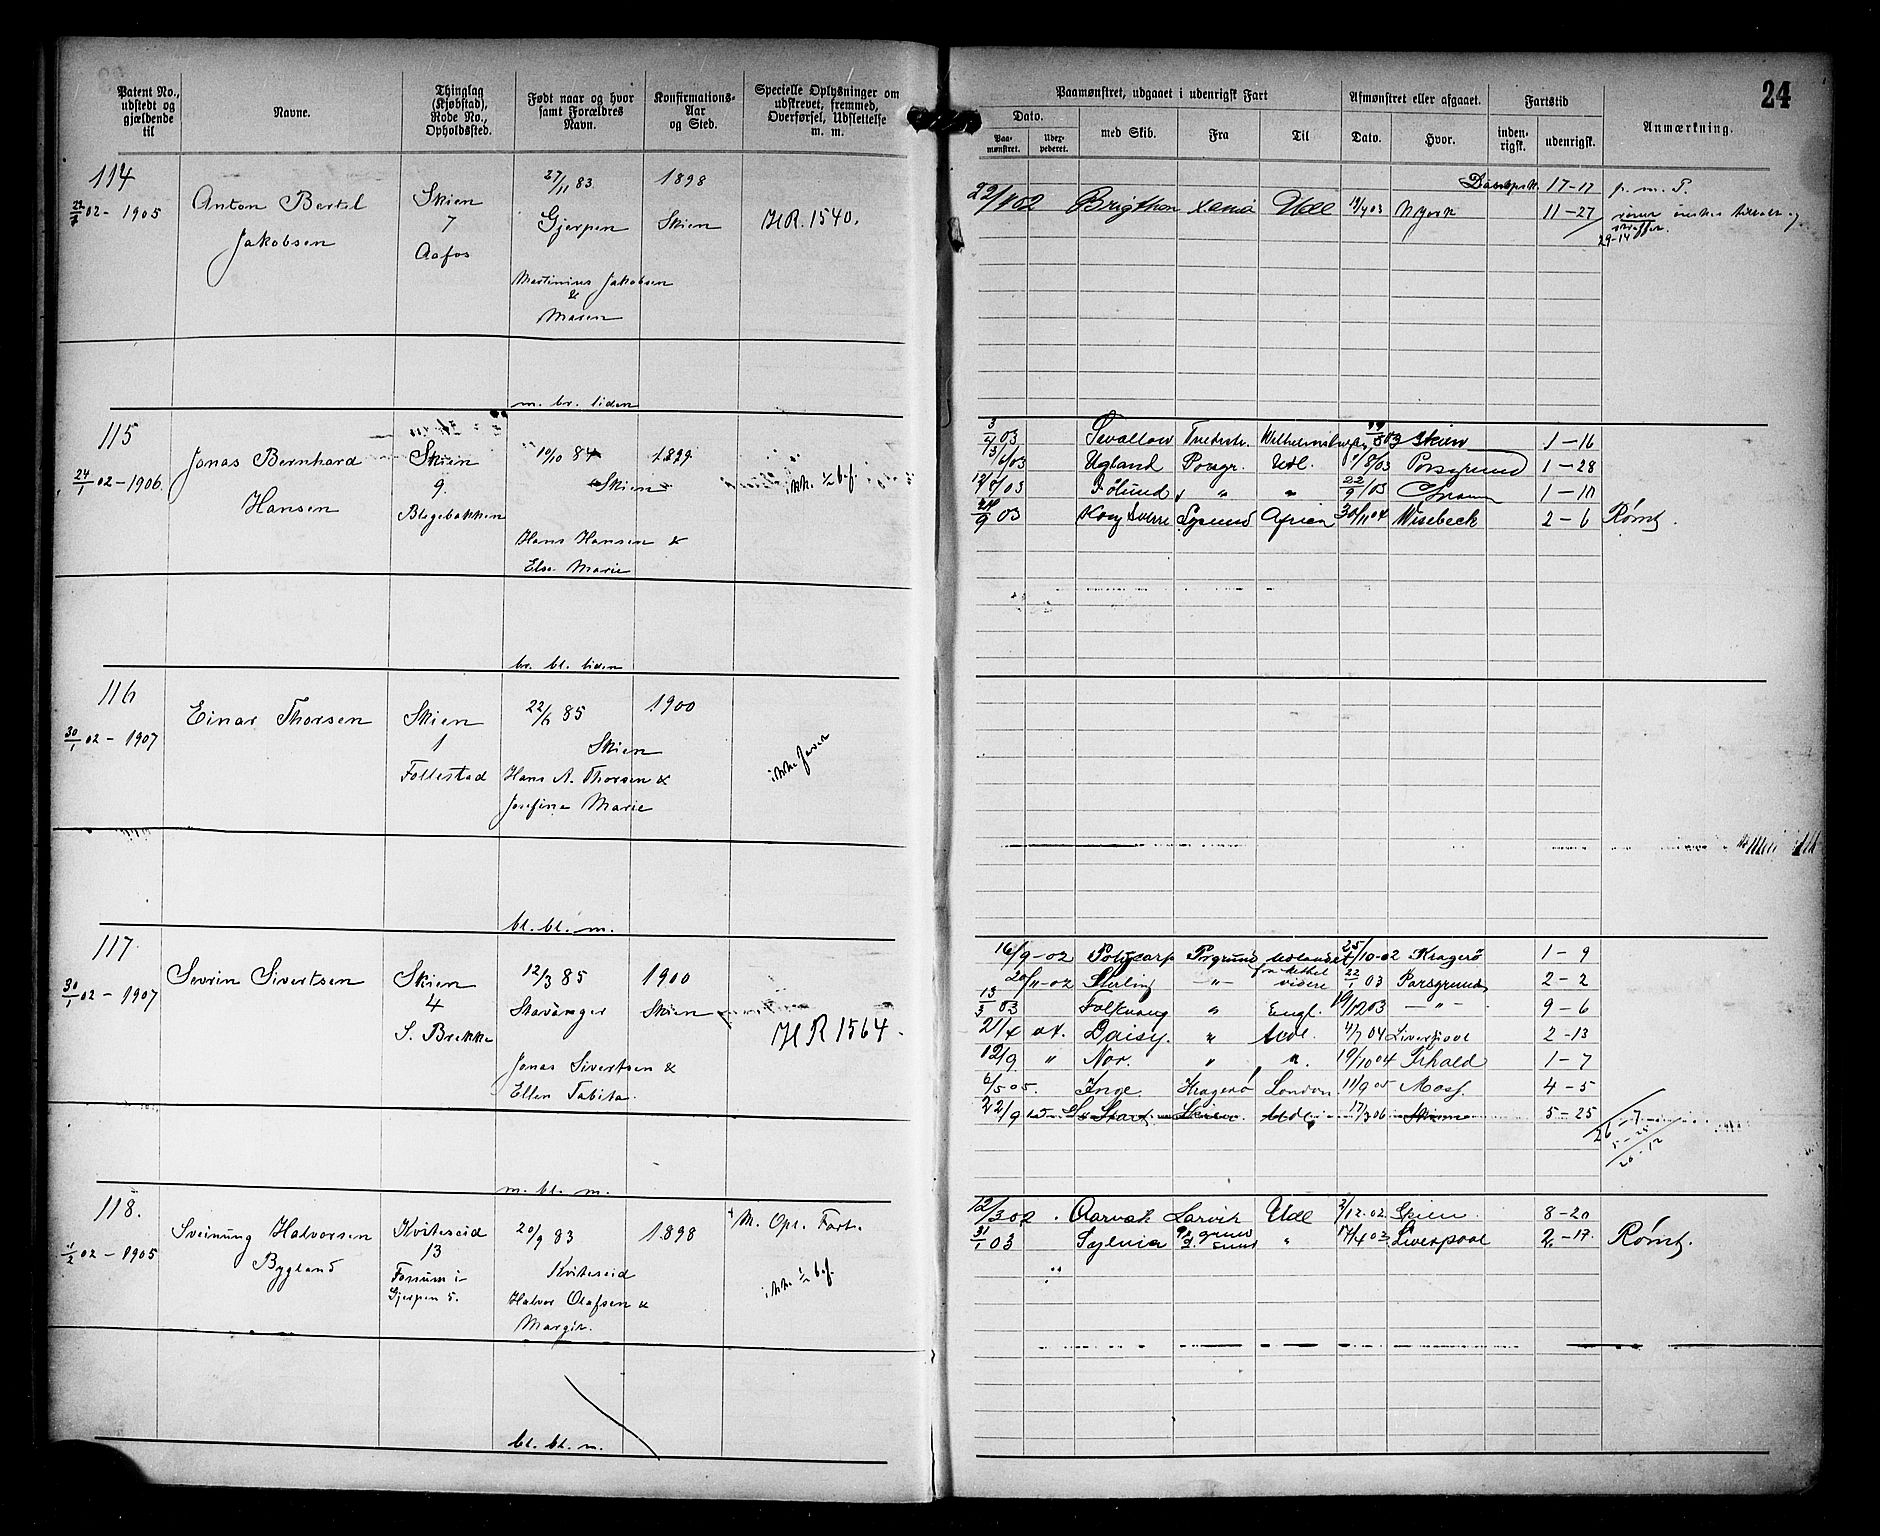 24
Patent No., udstedt og gjældende til
Navne.
Thinglag (Kjøbstad), Rode No., Opholdssted.
Født naar og hvor samt Forældres Navn.
Konfirmations-Aar og Sted.
Specielle Oplysninger om udskrevet, fremmed, Overførsel, Udslettelse m. m.
Paamønstret, udgaaet i udenrigsk Fart
Afmønstret eller afgaaet.
Fartstid
Anmærkning.
Dato.
Paamønstret.
Udexpederet.
med Skib.
Fra
Til
Dato.
Hvor.
indenrigsk.
udenrigsk.
114
02 - 1905
Anton Bertel
Jakobsen
Skien
7
Aafos
27/11 83
Gjerpen
Martinius Jakobsen
&
Maren
m. br. liden
1898
Skien
HR. 1540.
17-17
p. m. T.
22/ 02 Brigthon Udl N York 11-27
29-14
115
24/1 02 - 1906.
Jonas Bernhard
Hansen
Skien
9.
Blegebakken
10/10 84
Skien
Hans Hansen &
Else Marie
br. bl. liden
1899
ikke
3/4 03 Swallow Skien 1-16
13/6 03 Ugland Porsgr. Udl. 1/8 03 Porsgrund 1-28
03 Sølund " " 22/9 03 1-10
9 03 Afrika 30/11 04 Wisebeck 2-6 Rømt.
116
30/1 02 - 1907
Einar Thorsen
Skien
1
Follestad
22/6 85
Skien
Hans A. Thorsen &
Josefine Marie
bl. bl. m.
1900
ikke faren
117.
30/1 02 - 1907
Sevrin Sivertsen
Skien
4
S. Brekke
12/3 85
Stavanger
Jonas Sivertsen &
Ellen Tabita.
m. bl. m.
1900
Skien
HR 1564.
16/9-02 Polycarp Porgrund Udlandet 25/10-02 Kragerø 1-9
20/11-02 Sterling -"- videre 22/1 03 Porsgrund 2-2
13/3 03 Folkvang " Engl. 19/12 03 -"- 9-6
21/4 04. Daisy. " Udl. 4/7 04 Liverpool 2-13
12/9 " Nor. " " 19/10 04 Frhald 1-7
6/5 05. Inge Kragerø London 11/9 05 Moss. 4-5
22/9 05 Start Skien Udl. 17/3 06 Skien 5-25
26-7
5-25
20-12
118.
1/2 02 - 1905
Sveinung Halvorsen
Bygland
Kviteseid
13
Fossum i
Gjerpen 5.
20/9 83
Kviteseid
Halvor Olafsen &
Margit.
bl. bl. m.
1898
M. Opl. Fart.
ikke
12/3 02 Aarvak Larvik Udl 2/12.02 Skien. 8-20
31/1 03 Sylvia " 17/4 03 Liverpool 2-17. Rømt.